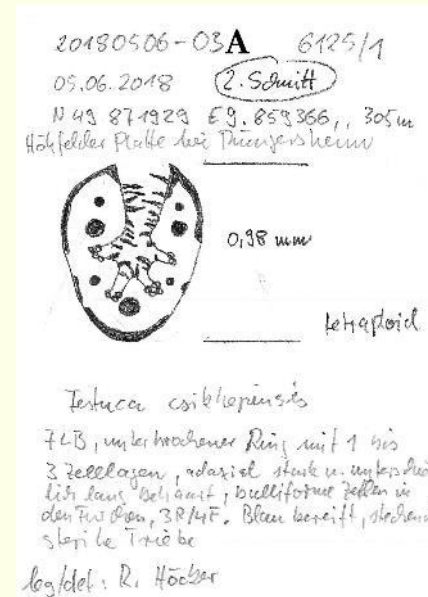 20180506-03A 6125/1
05.06.2018 2. Schnitt
N 49 871929 E 9.859366,, 305m
Höhfelder Platte bei Thüngersheim
0,98 mm
tetraploid
Festuca csikhegyensis
7 LB, unterbrochener Ring mit 1 bis
3 Zelllagen, adaxial stark u. unterschied
lich lang behaart, bulliforme Zellen in
den Furchen, 3R/4F. Blau bereift, stechend
sterile Triebe
leg/det: R. Höcker